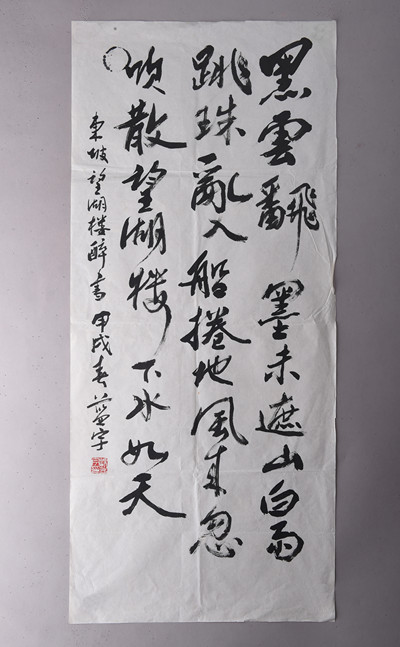 黑雲飜墨未遮山白雨
跳珠亂入船捲地風来忽
吹散望湖楼下水如天
東坡望湖楼醉書甲戌春